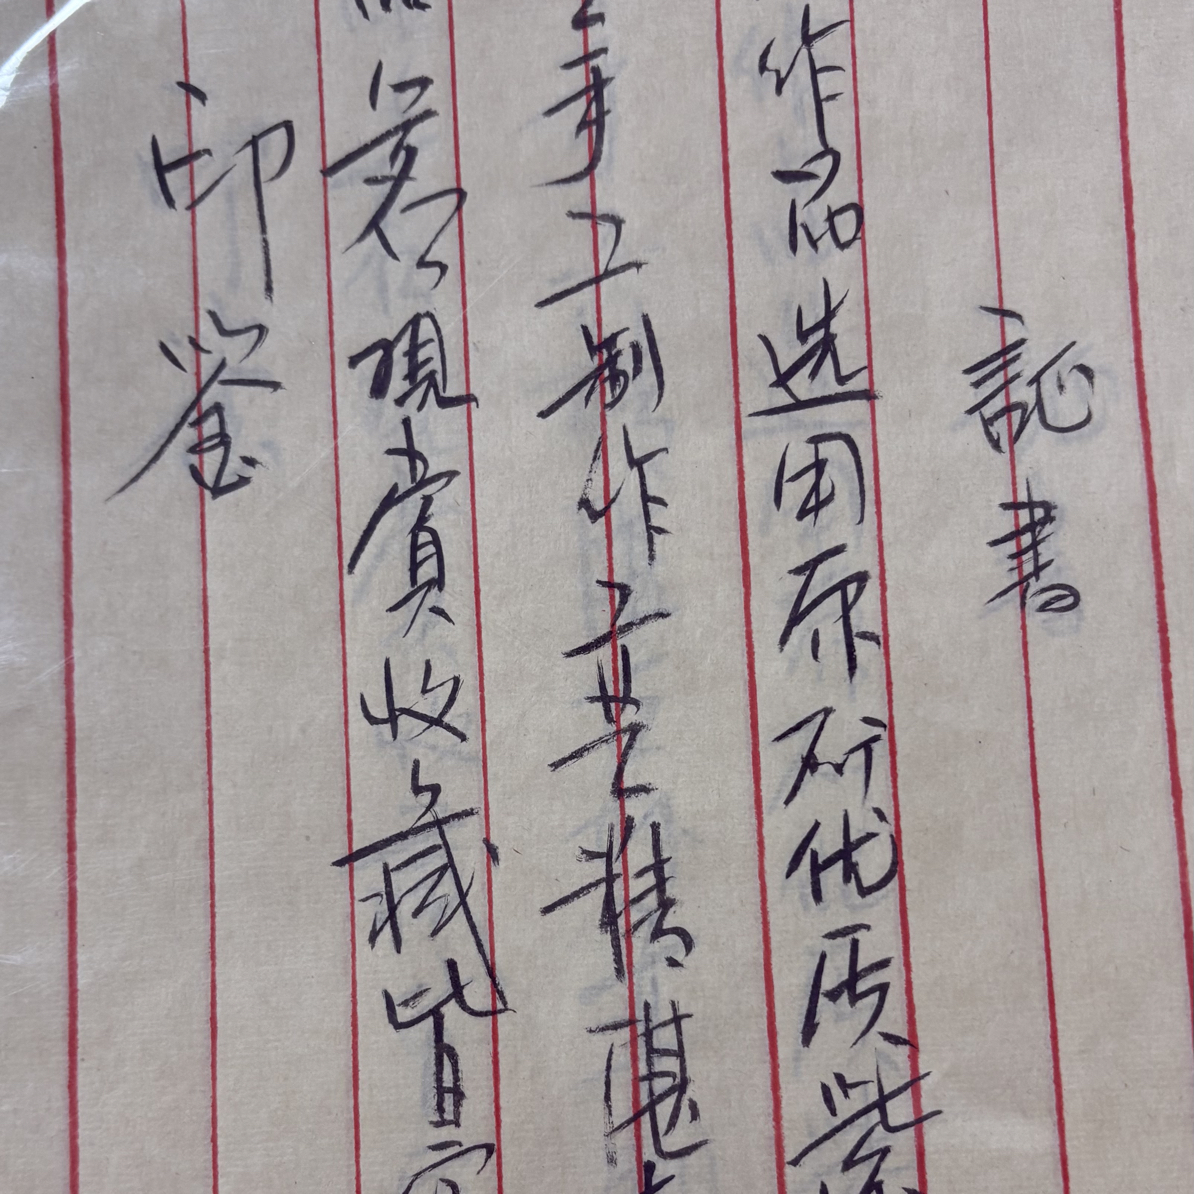 証書
作品选用原矿优质紫
手工制作工艺精湛
品茗观赏收藏皆宜
印鉴